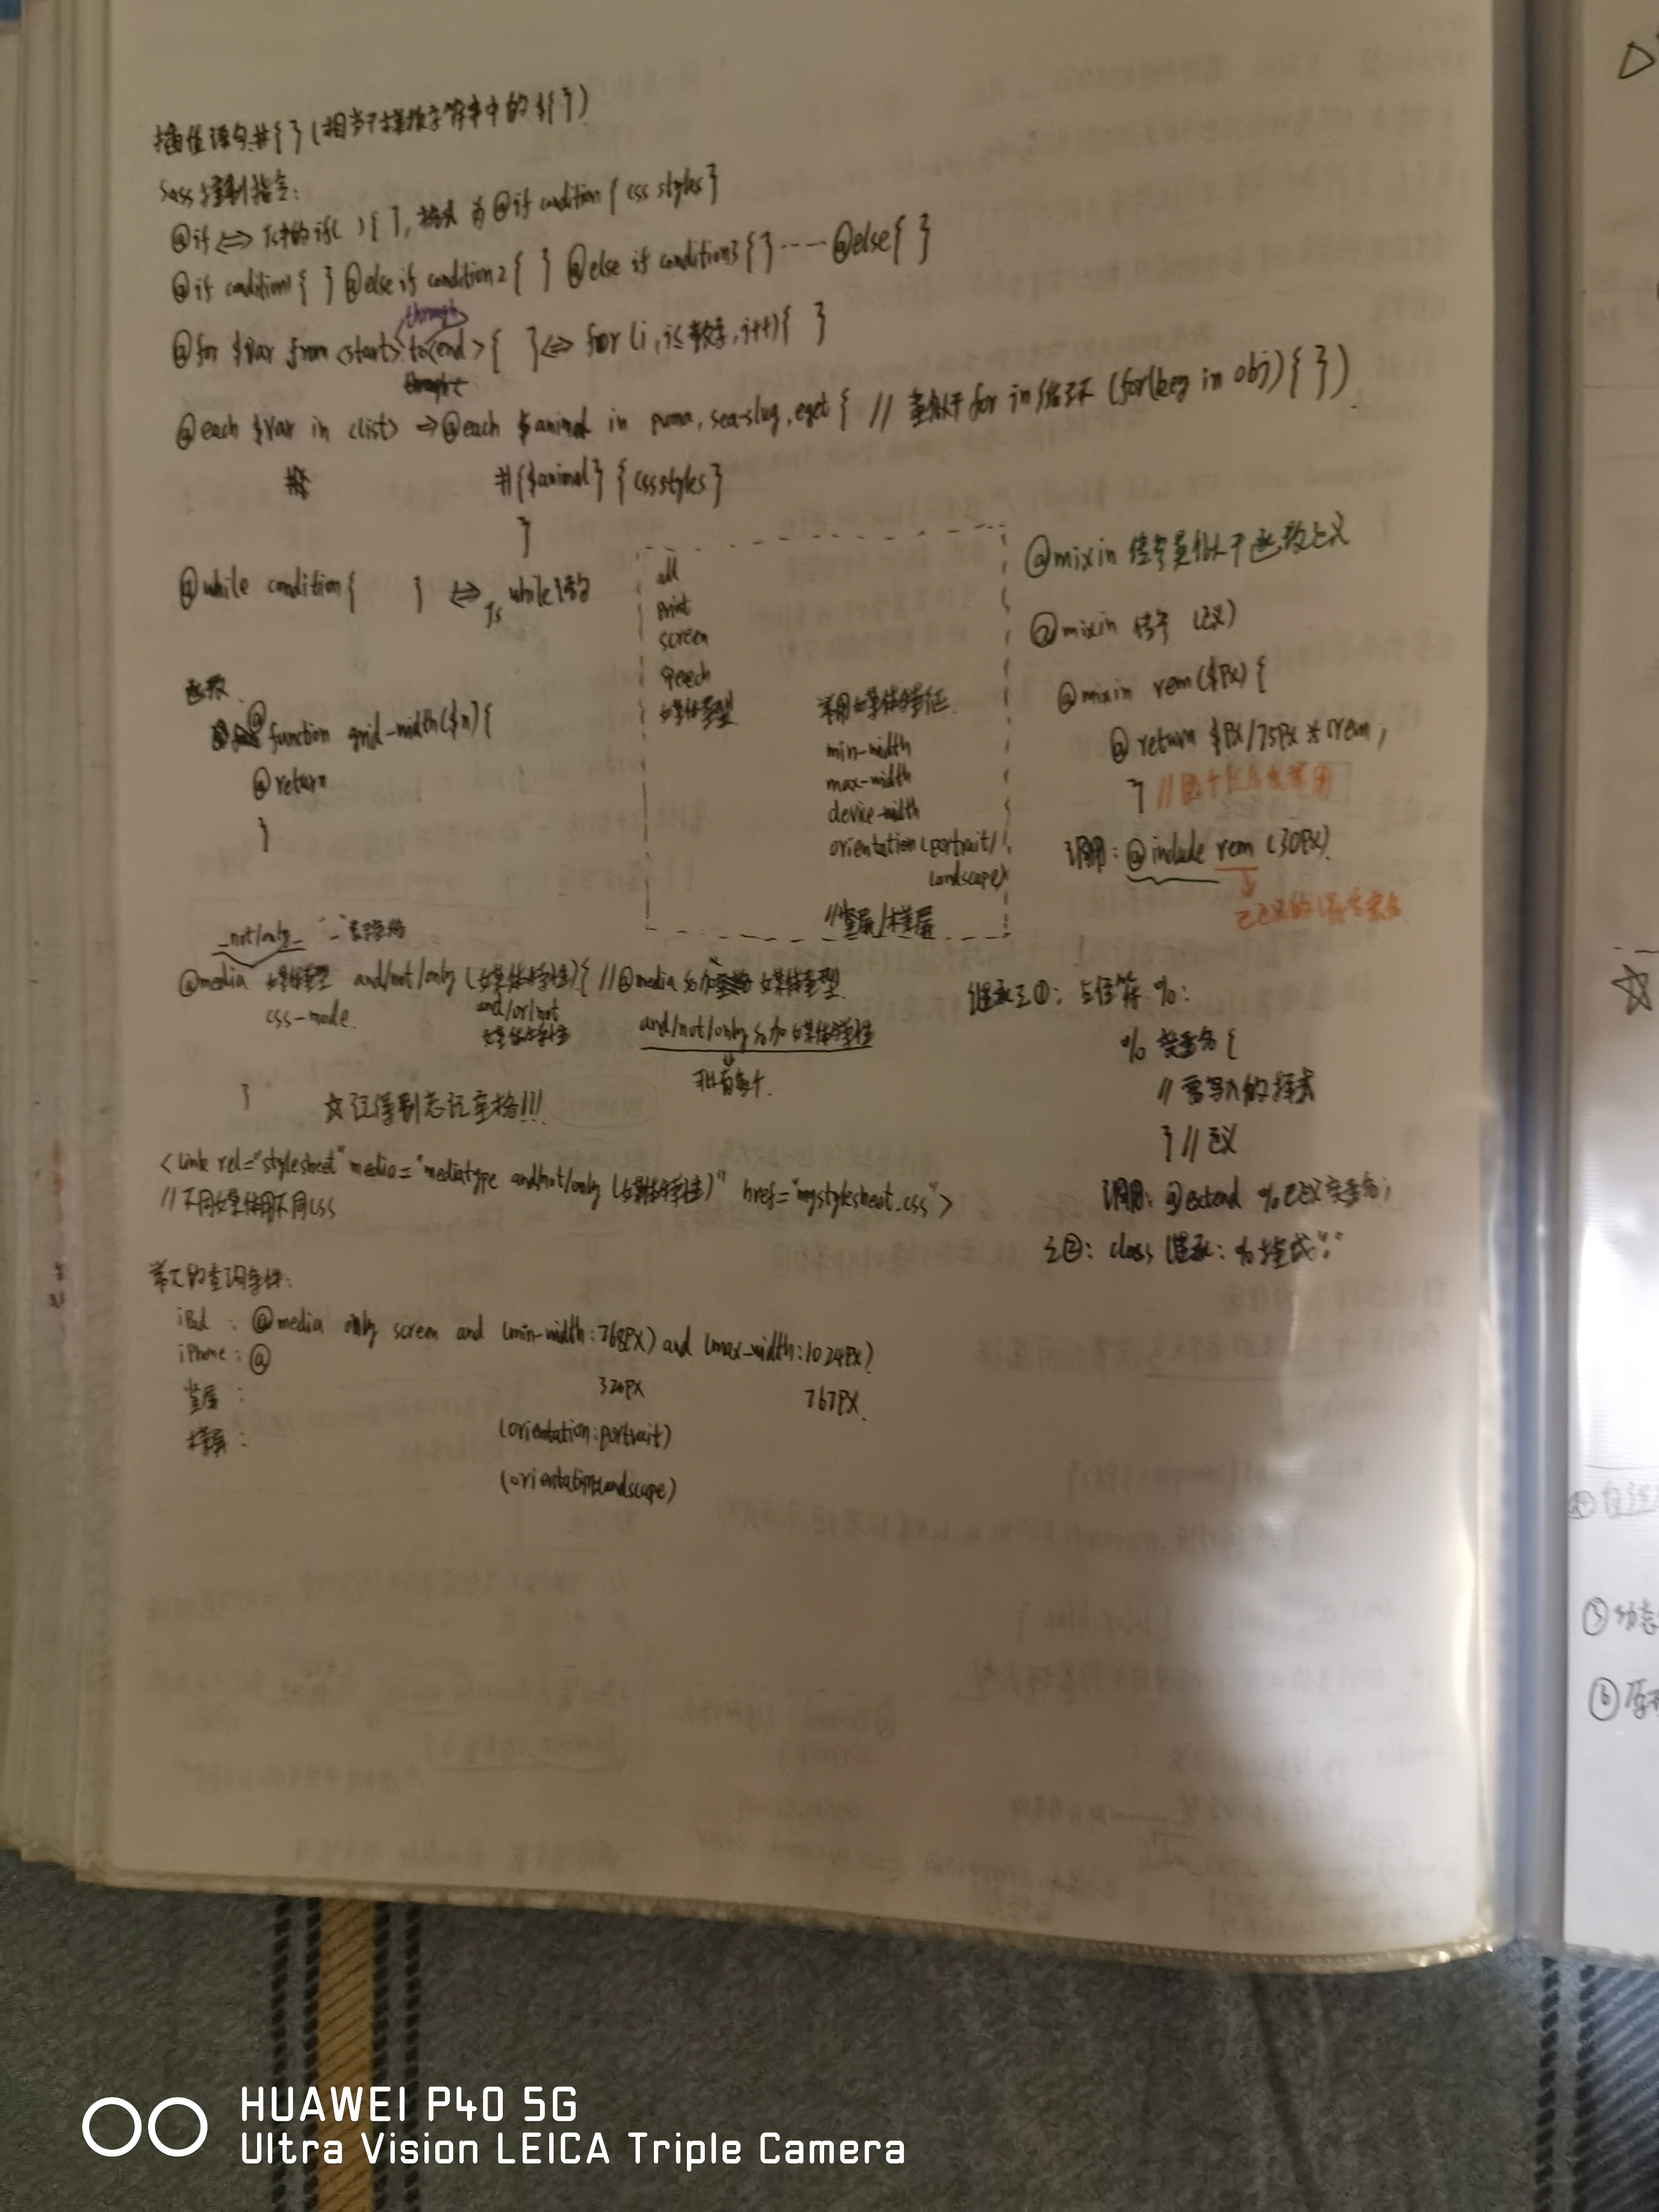 插值语句#{ }(相当于模板字符串中的${ })
Sass控制指令:
@if ⇔ Js中的if( ){ }, 格式为@if condition { css styles }
@if condition1{ } @else if condition2{ } @else if condition3{ }……@else{ }
through
@for $var from <start> to <end> { } ⇔ for (i, i≤数字, i++){ }
@each $var in <list> ⇒ @each $animal in puma, sea-slug, eget { // 类似于for in循环 (for(key in obj){ })
#{$animal} {css styles}
}
@while condition{ } ⇔ Js while语句
函数
@function grid-width($n){
@return
}
all
print
screen
speech
媒体类型
常用媒体特征
min-width
max-width
device-width
orientation(portrait/
landscape)
//竖屏/横屏
@mixin 信号类似于函数定义
@mixin 信号 (定义)
@mixin rem($px) {
@return $px/75px * 1rem;
} //
调用: @include rem (30px).
已定义的混合宏名
_not/only_
@media 媒体类型 and/not/only (媒体特性){ // @media 后加 媒体类型
css-mode.
and/or/not
媒体特性
and/not/only后加媒体特性
}
☆记得别忘记空格!!!
<link rel="stylesheet" media="mediatype and/not/only (媒体特性)" href="mystylesheet.css">
//不同媒体用不同css
继承 ①: 占位符 %:
% 变量名 {
// 需写入的样式
} // 定义
调用: @extend %已定义变量名;
②: class 继承: %换成"."
常见的查询条件:
iPad : @media only screen and (min-width:768px) and (max-width:1024px)
iPhone : @
320px
767px.
竖屏 :
(orientation:portrait)
横屏 :
(orientation:landscape)
☆
③ 动态
⑥ 原
HUAWEI P40 5G
Ultra Vision LEICA Triple Camera